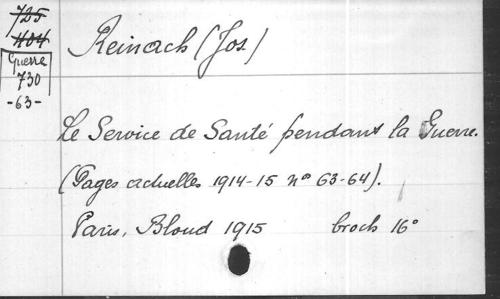 725
404
Guerre
730
-63-
Reinach (Jos)
Le Service de Santé pendant la Guerre.
(Pages actuelles 1914-15 nº 63-64).
Paris, Bloud 1915 broch 16º